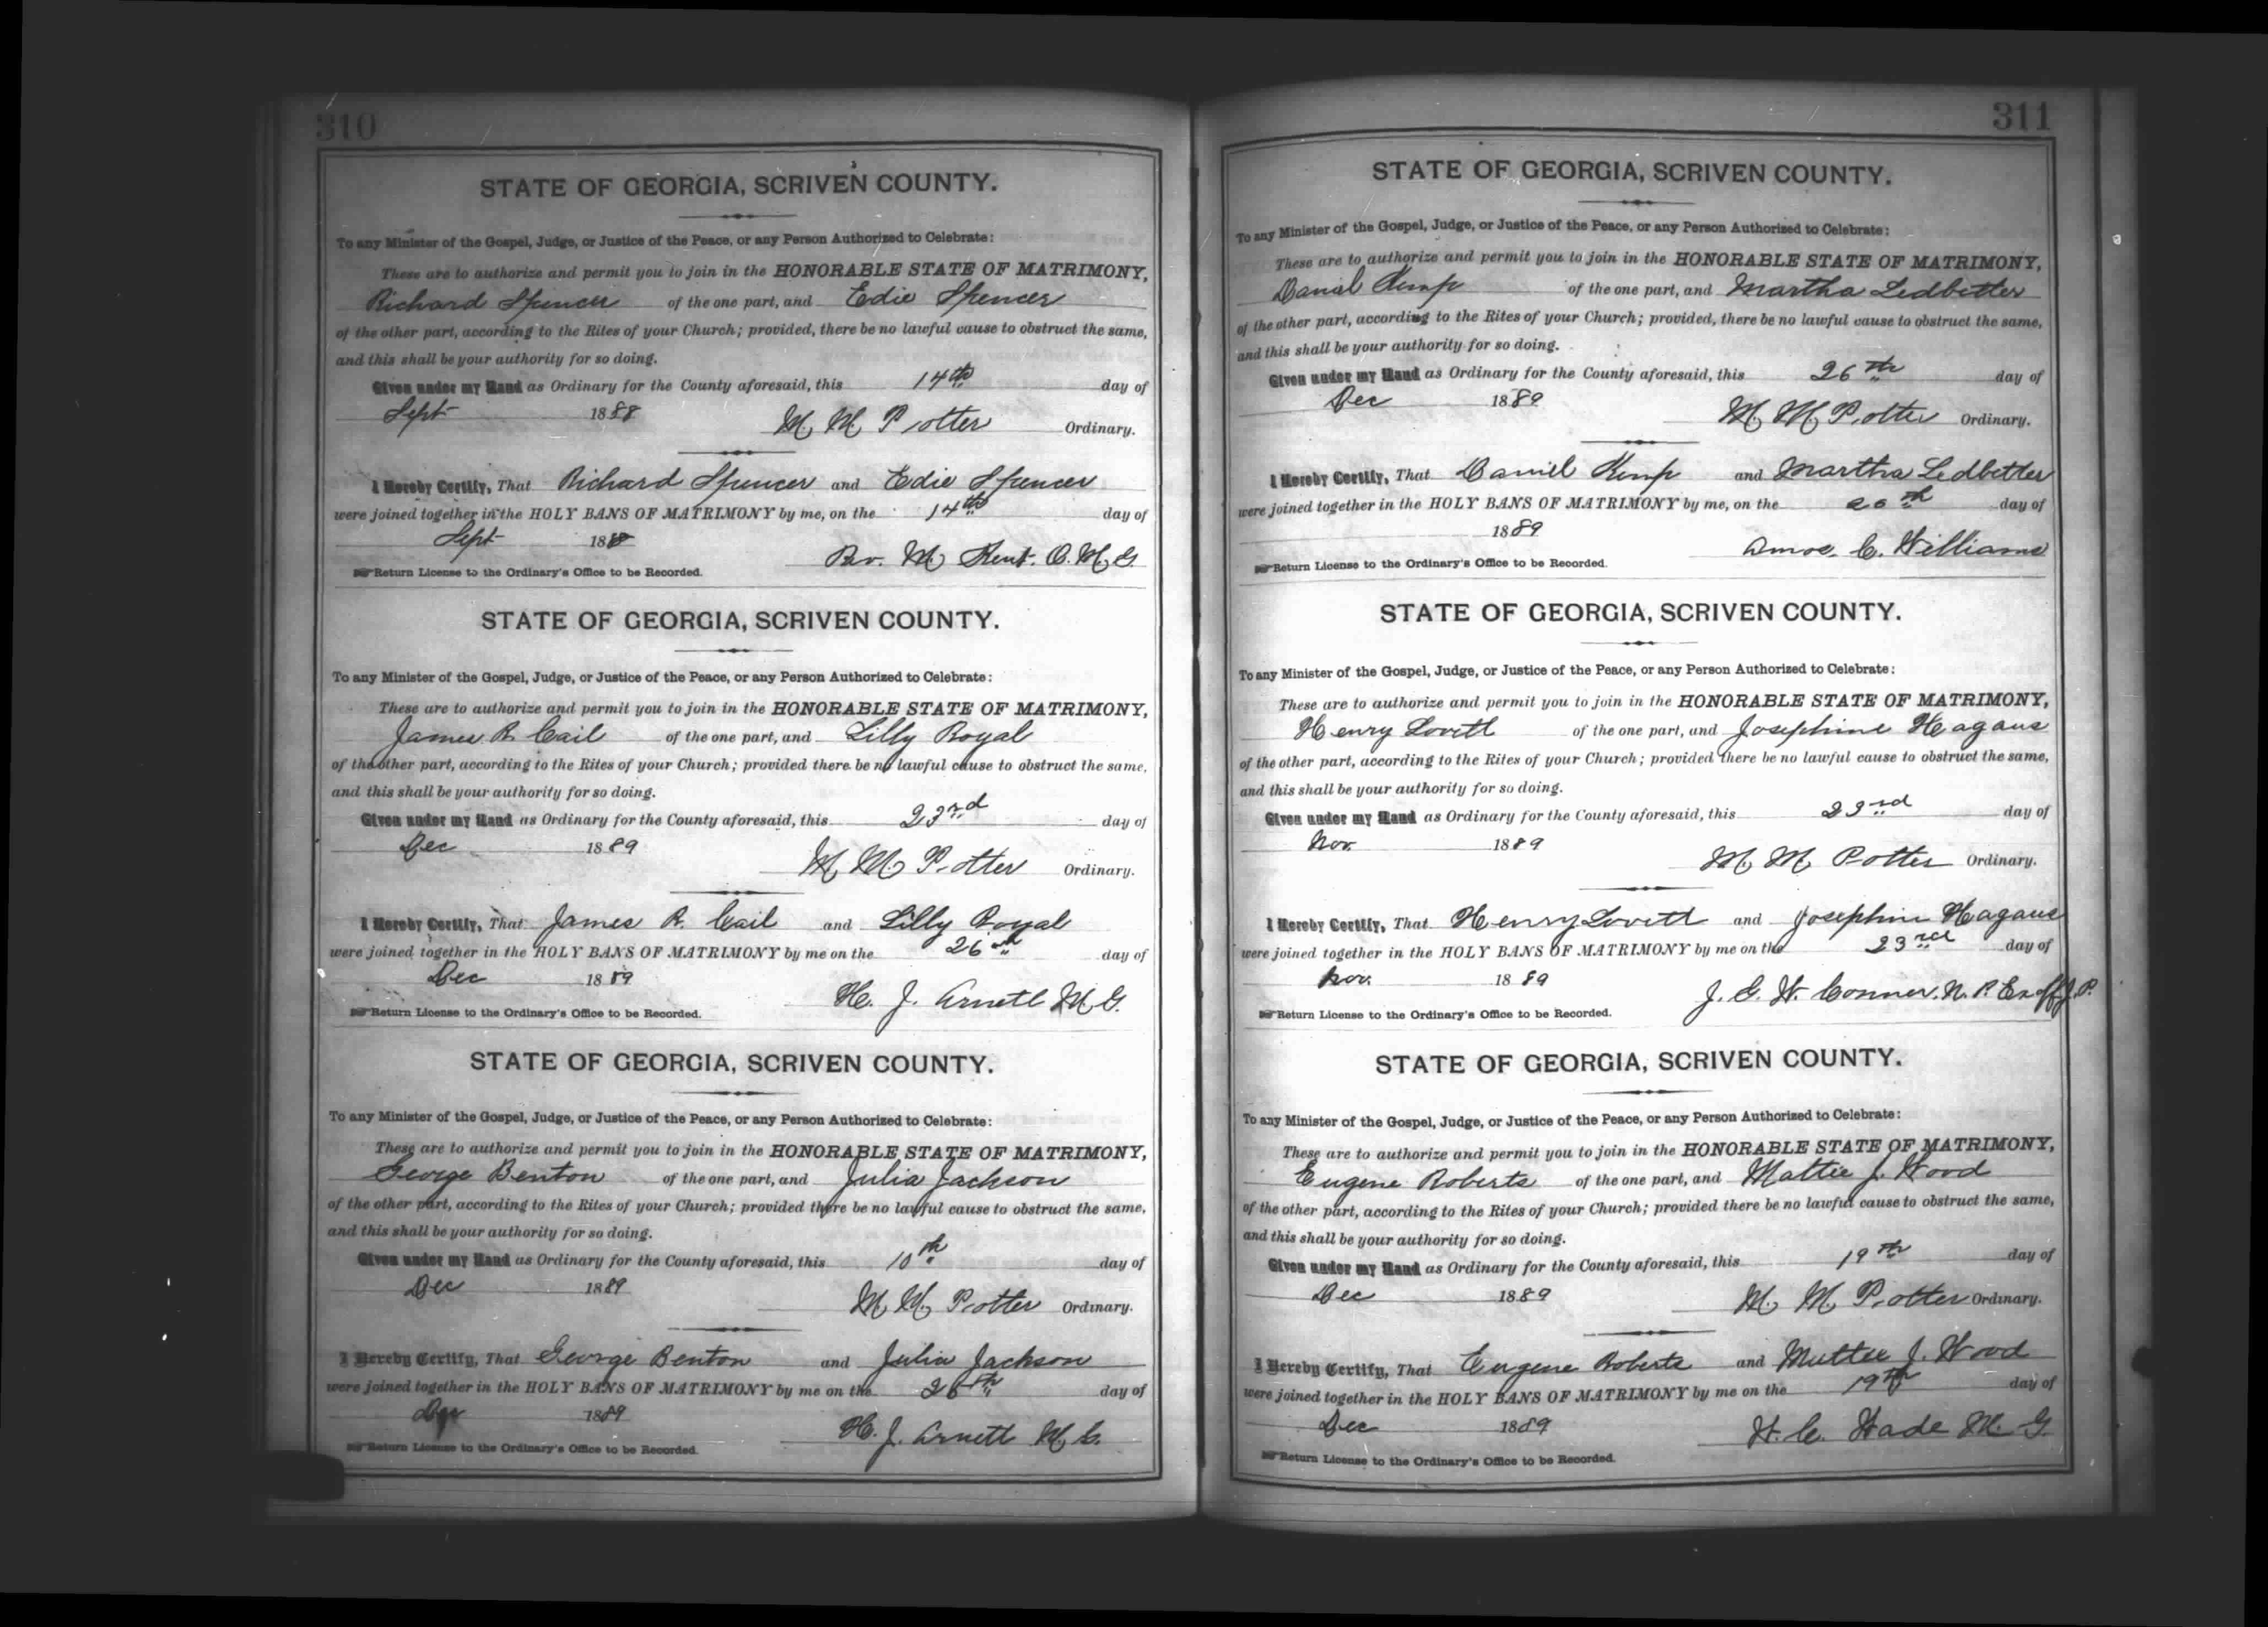 310
STATE OF GEORGIA, SCRIVEN COUNTY.
To any Minister of the Gospel, Judge, or Justice of the Peace, or any Person Authorized to Celebrate:
These are to authorize and permit you to join in the HONORABLE STATE OF MATRIMONY,
Richard Spencer of the one part, and Edie Spencer
of the other part, according to the Rites of your Church; provided, there be no lawful cause to obstruct the same,
and this shall be your authority for so doing.
Given under my Hand as Ordinary for the County aforesaid, this 14th day of
Sept 1888 M. M. Potter Ordinary.
I Hereby Certify, That Richard Spencer and Edie Spencer
were joined together in the HOLY BANS OF MATRIMONY by me, on the 14th day of
Sept 188 Rev. M. Kent. O. M. G.
Return License to the Ordinary's Office to be Recorded.
STATE OF GEORGIA, SCRIVEN COUNTY.
To any Minister of the Gospel, Judge, or Justice of the Peace, or any Person Authorized to Celebrate:
These are to authorize and permit you to join in the HONORABLE STATE OF MATRIMONY,
James R. Cail of the one part, and Lilly Royal
of the other part, according to the Rites of your Church; provided there be no lawful cause to obstruct the same,
and this shall be your authority for so doing.
Given under my Hand as Ordinary for the County aforesaid, this 23rd day of
Dec 1889 M. M. Potter Ordinary.
I Hereby Certify, That James R. Cail and Lilly Royal
were joined together in the HOLY BANS OF MATRIMONY by me on the 26th day of
Dec 1889 H. J. Arnett M. G.
Return License to the Ordinary's Office to be Recorded.
STATE OF GEORGIA, SCRIVEN COUNTY.
To any Minister of the Gospel, Judge, or Justice of the Peace, or any Person Authorized to Celebrate:
These are to authorize and permit you to join in the HONORABLE STATE OF MATRIMONY,
George Benton of the one part, and Julia Jackson
of the other part, according to the Rites of your Church; provided there be no lawful cause to obstruct the same,
and this shall be your authority for so doing.
Given under my Hand as Ordinary for the County aforesaid, this 10th day of
Dec 1889 M. M. Potter Ordinary.
I Hereby Certify, That George Benton and Julia Jackson
were joined together in the HOLY BANS OF MATRIMONY by me on the 26th day of
Dec 1889 H. J. Arnett M. G.
Return License to the Ordinary's Office to be Recorded.
311
STATE OF GEORGIA, SCRIVEN COUNTY.
To any Minister of the Gospel, Judge, or Justice of the Peace, or any Person Authorized to Celebrate:
These are to authorize and permit you to join in the HONORABLE STATE OF MATRIMONY,
Daniel Kemp of the one part, and Martha Ledbetter
of the other part, according to the Rites of your Church; provided, there be no lawful cause to obstruct the same,
and this shall be your authority for so doing.
Given under my Hand as Ordinary for the County aforesaid, this 26th day of
Dec 1889 M. M. Potter Ordinary.
I Hereby Certify, That Daniel Kemp and Martha Ledbetter
were joined together in the HOLY BANS OF MATRIMONY by me, on the 26th day of
1889 Amos. C. Williams
Return License to the Ordinary's Office to be Recorded.
STATE OF GEORGIA, SCRIVEN COUNTY.
To any Minister of the Gospel, Judge, or Justice of the Peace, or any Person Authorized to Celebrate:
These are to authorize and permit you to join in the HONORABLE STATE OF MATRIMONY,
Henry Lovett of the one part, and Josephine Hagans
of the other part, according to the Rites of your Church; provided there be no lawful cause to obstruct the same,
and this shall be your authority for so doing.
Given under my Hand as Ordinary for the County aforesaid, this 23rd day of
Nov. 1889 M. M. Potter Ordinary.
I Hereby Certify, That Henry Lovett and Josephine Hagans
were joined together in the HOLY BANS OF MATRIMONY by me on the 23rd day of
Nov. 1889 J. G. W. Conner. N. P. Ex off J. P.
Return License to the Ordinary's Office to be Recorded.
STATE OF GEORGIA, SCRIVEN COUNTY.
To any Minister of the Gospel, Judge, or Justice of the Peace, or any Person Authorized to Celebrate:
These are to authorize and permit you to join in the HONORABLE STATE OF MATRIMONY,
Eugene Roberts of the one part, and Mattie J. Wood
of the other part, according to the Rites of your Church; provided there be no lawful cause to obstruct the same,
and this shall be your authority for so doing.
Given under my Hand as Ordinary for the County aforesaid, this 19th day of
Dec 1889 M. M. Potter Ordinary.
I Hereby Certify, That Eugene Roberts and Mattie J. Wood
were joined together in the HOLY BANS OF MATRIMONY by me on the 19th day of
Dec 1889 W. C. Wade M. G.
Return License to the Ordinary's Office to be Recorded.